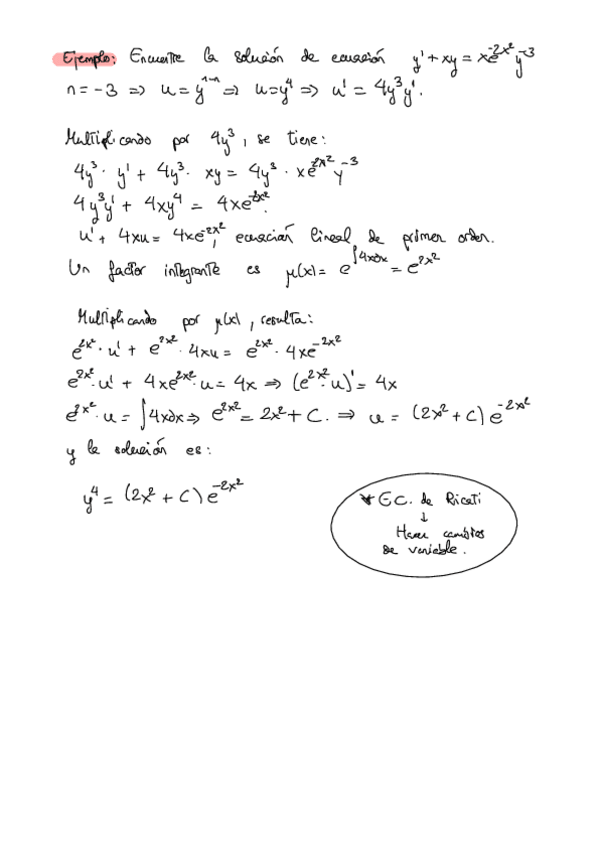 Ejemplo: Encuentre la solución de ecuación y' + xy = xe^{-2x²}y^{-3}
n = -3 => u = y^{1-n} => u = y⁴ => u' = 4y³y'.
Multiplicando por 4y³, se tiene:
4y³ · y' + 4y³ · xy = 4y³ · xe^{-2x²}y^{-3}
4y³y' + 4xy⁴ = 4xe^{-2x²}.
u' + 4xu = 4xe^{-2x²}, ecuación lineal de primer orden.
Un factor integrante es μ(x) = e^{∫4xdx} = e^{2x²}
Multiplicando por μ(x), resulta:
e^{2x²} · u' + e^{2x²} · 4xu = e^{2x²} · 4xe^{-2x²}
e^{2x²} · u' + 4xe^{2x²} · u = 4x => (e^{2x²} · u)' = 4x
e^{2x²} · u = ∫4xdx => e^{2x²} = 2x² + C. => u = (2x² + C) e^{-2x²}
y la solución es:
y⁴ = (2x² + C) e^{-2x²}
* EC. de Ricati
↓
Hacer cambios
de variable.